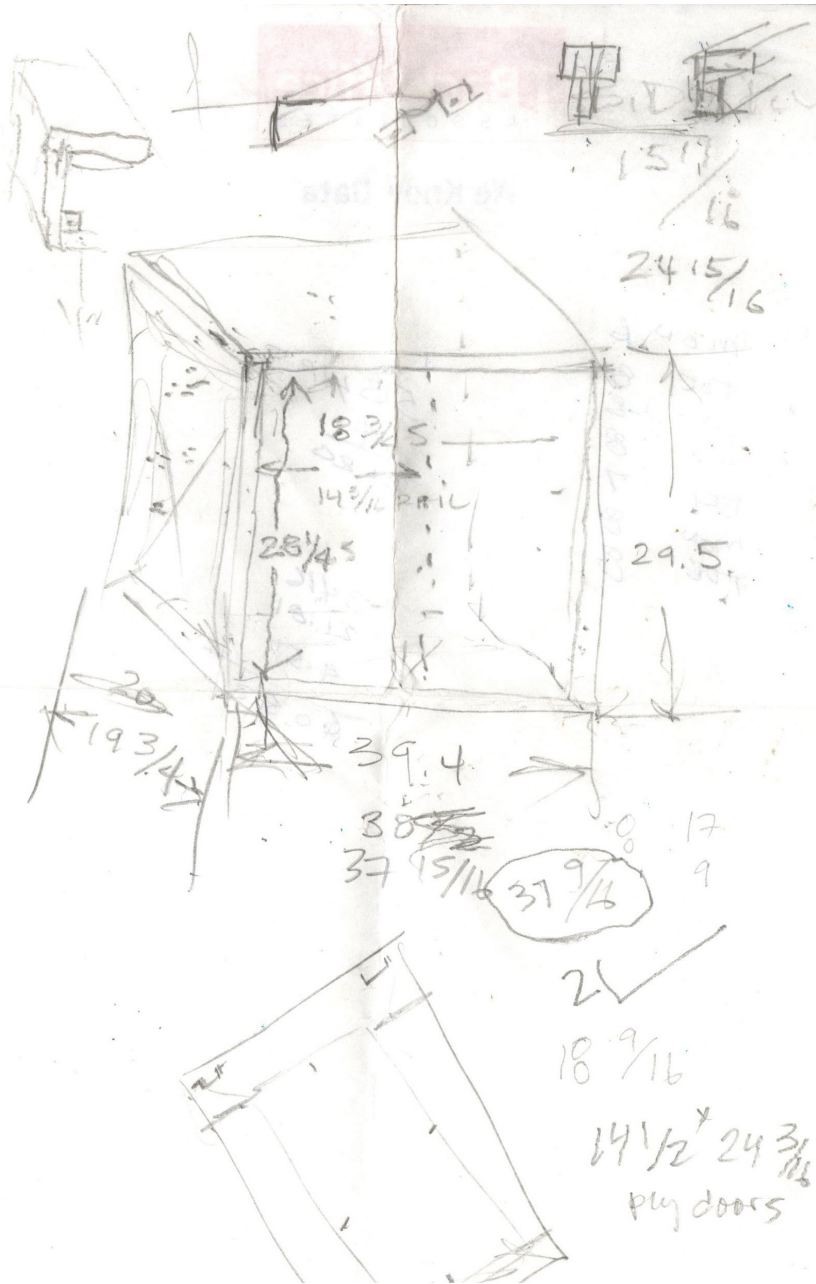 15 17/16
24 15/16
18 3/4 S
14 3/16 RAIL
28 1/4 S
29.5
20
19 3/4
39.4
38 1/2
37 15/16
37 9/16
17
9
2
18 9/16
14 1/2 x 24 3/16
ply doors